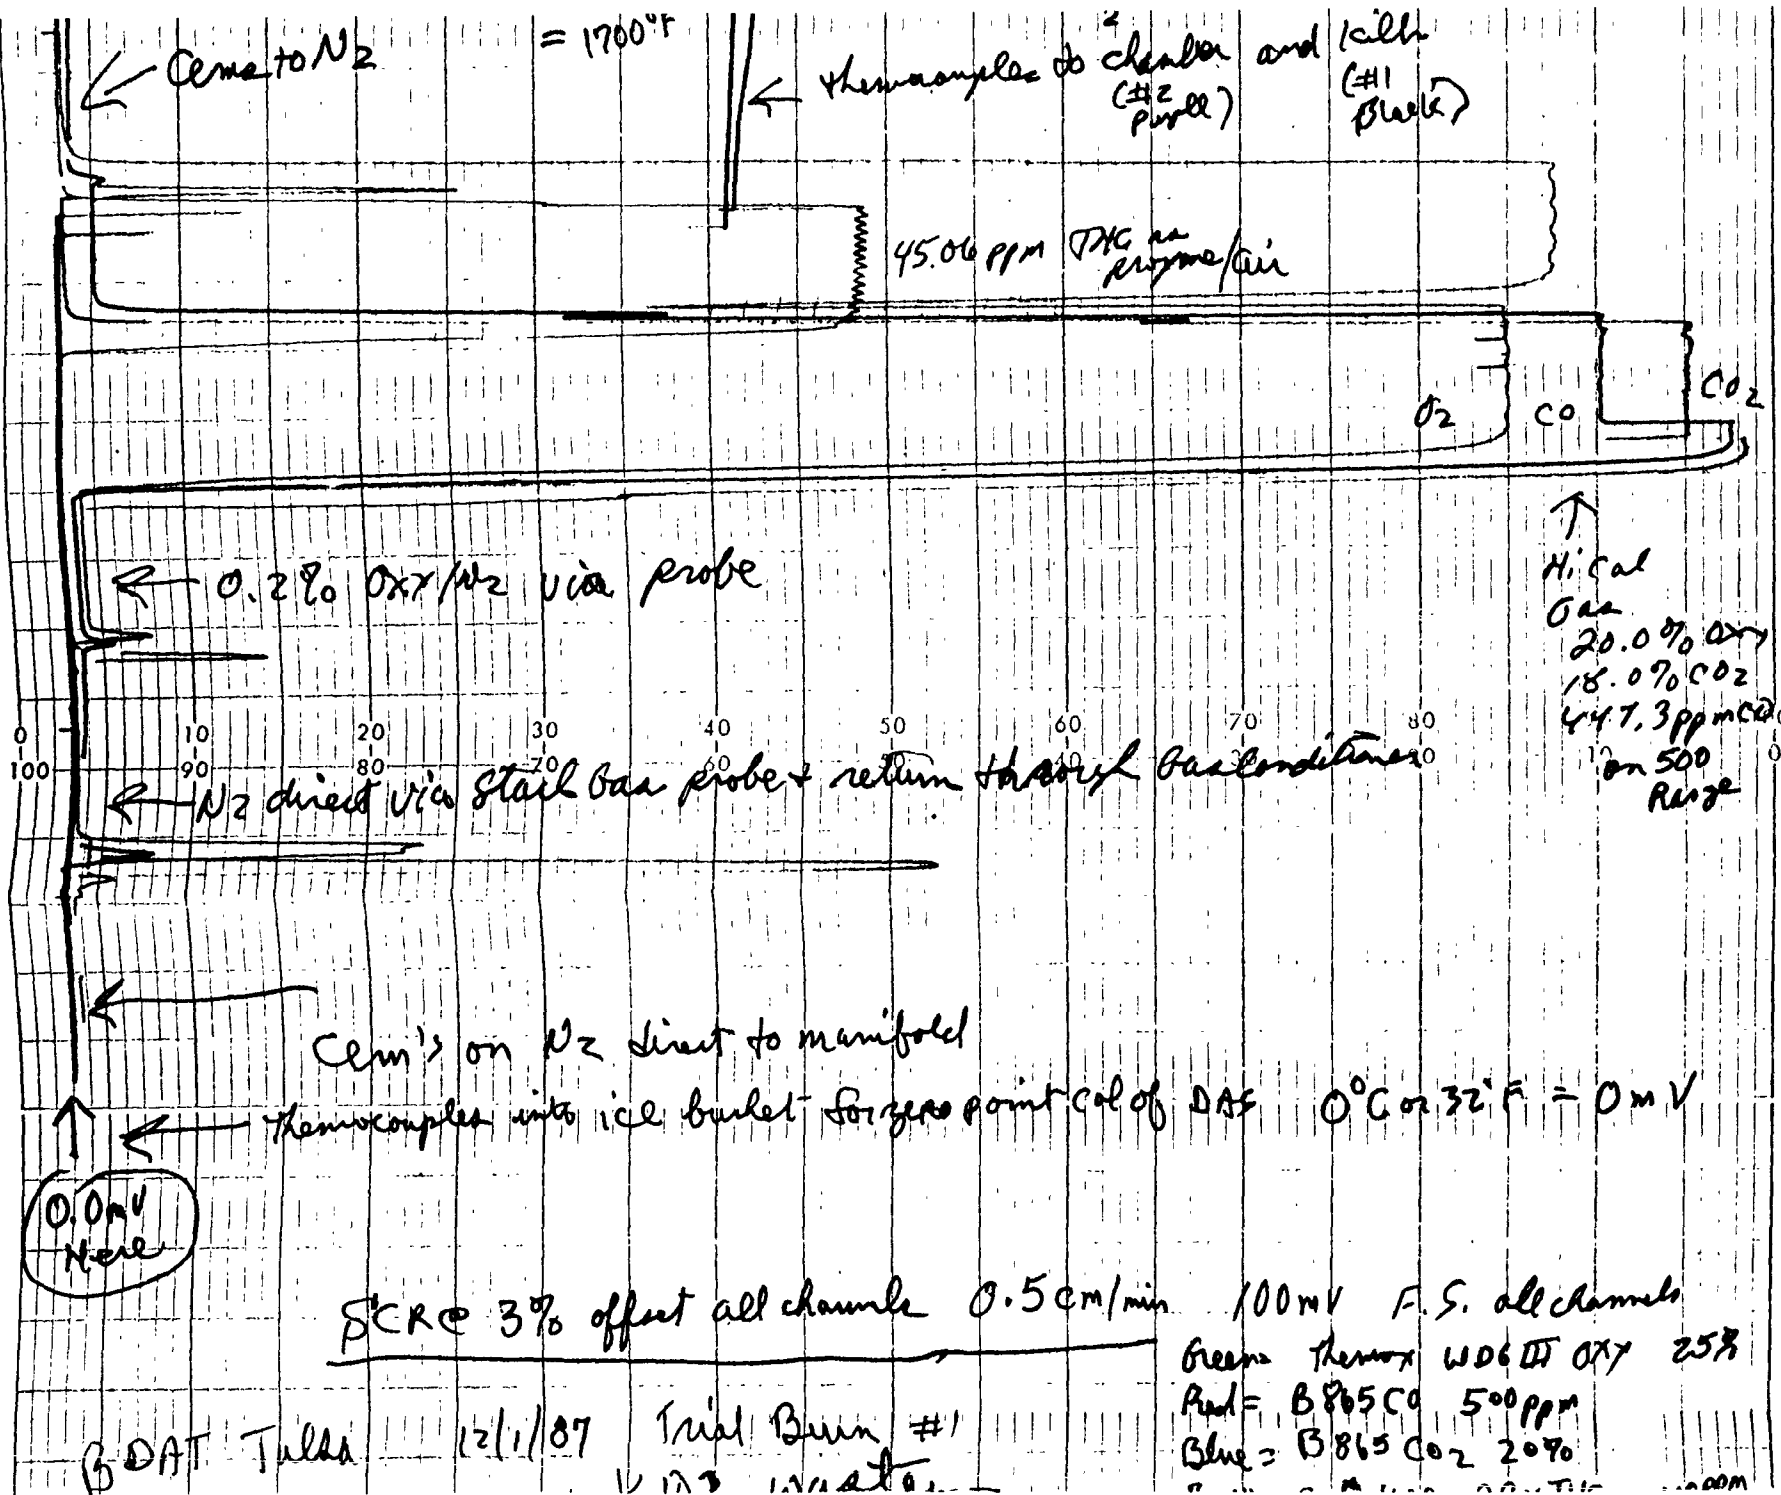 Cems to N2
= 1700°F
thermocouples to chamber and kiln
(#2 purple)
(#1 Black)
45.06 ppm THC as propane/air
O2
CO
CO2
0.2% Oxy/N2 via probe
Hi Cal
Gas
20.0% Oxy
18.0% CO2
447.3 ppm CO
on 500
Range
0 10 20 30 40 50 60 70 80
100 90 80 70 60 10 0
N2 direct via Stack Gas probe & return through Gas Conditioner
Cem's on N2 direct to manifold
Thermocouples into ice bucket for zero point cal of DAS 0°C or 32°F = 0 mV
0.0mV
Here
SCR @ 3% offset all channels 0.5 cm/min 100 mV F.S. all channels
Green = Thermox WDG III OXY 25%
Red = B 865 CO 500 ppm
Blue = B 865 CO2 20%
BDAT Tulsa 12/1/87 Trial Burn #1